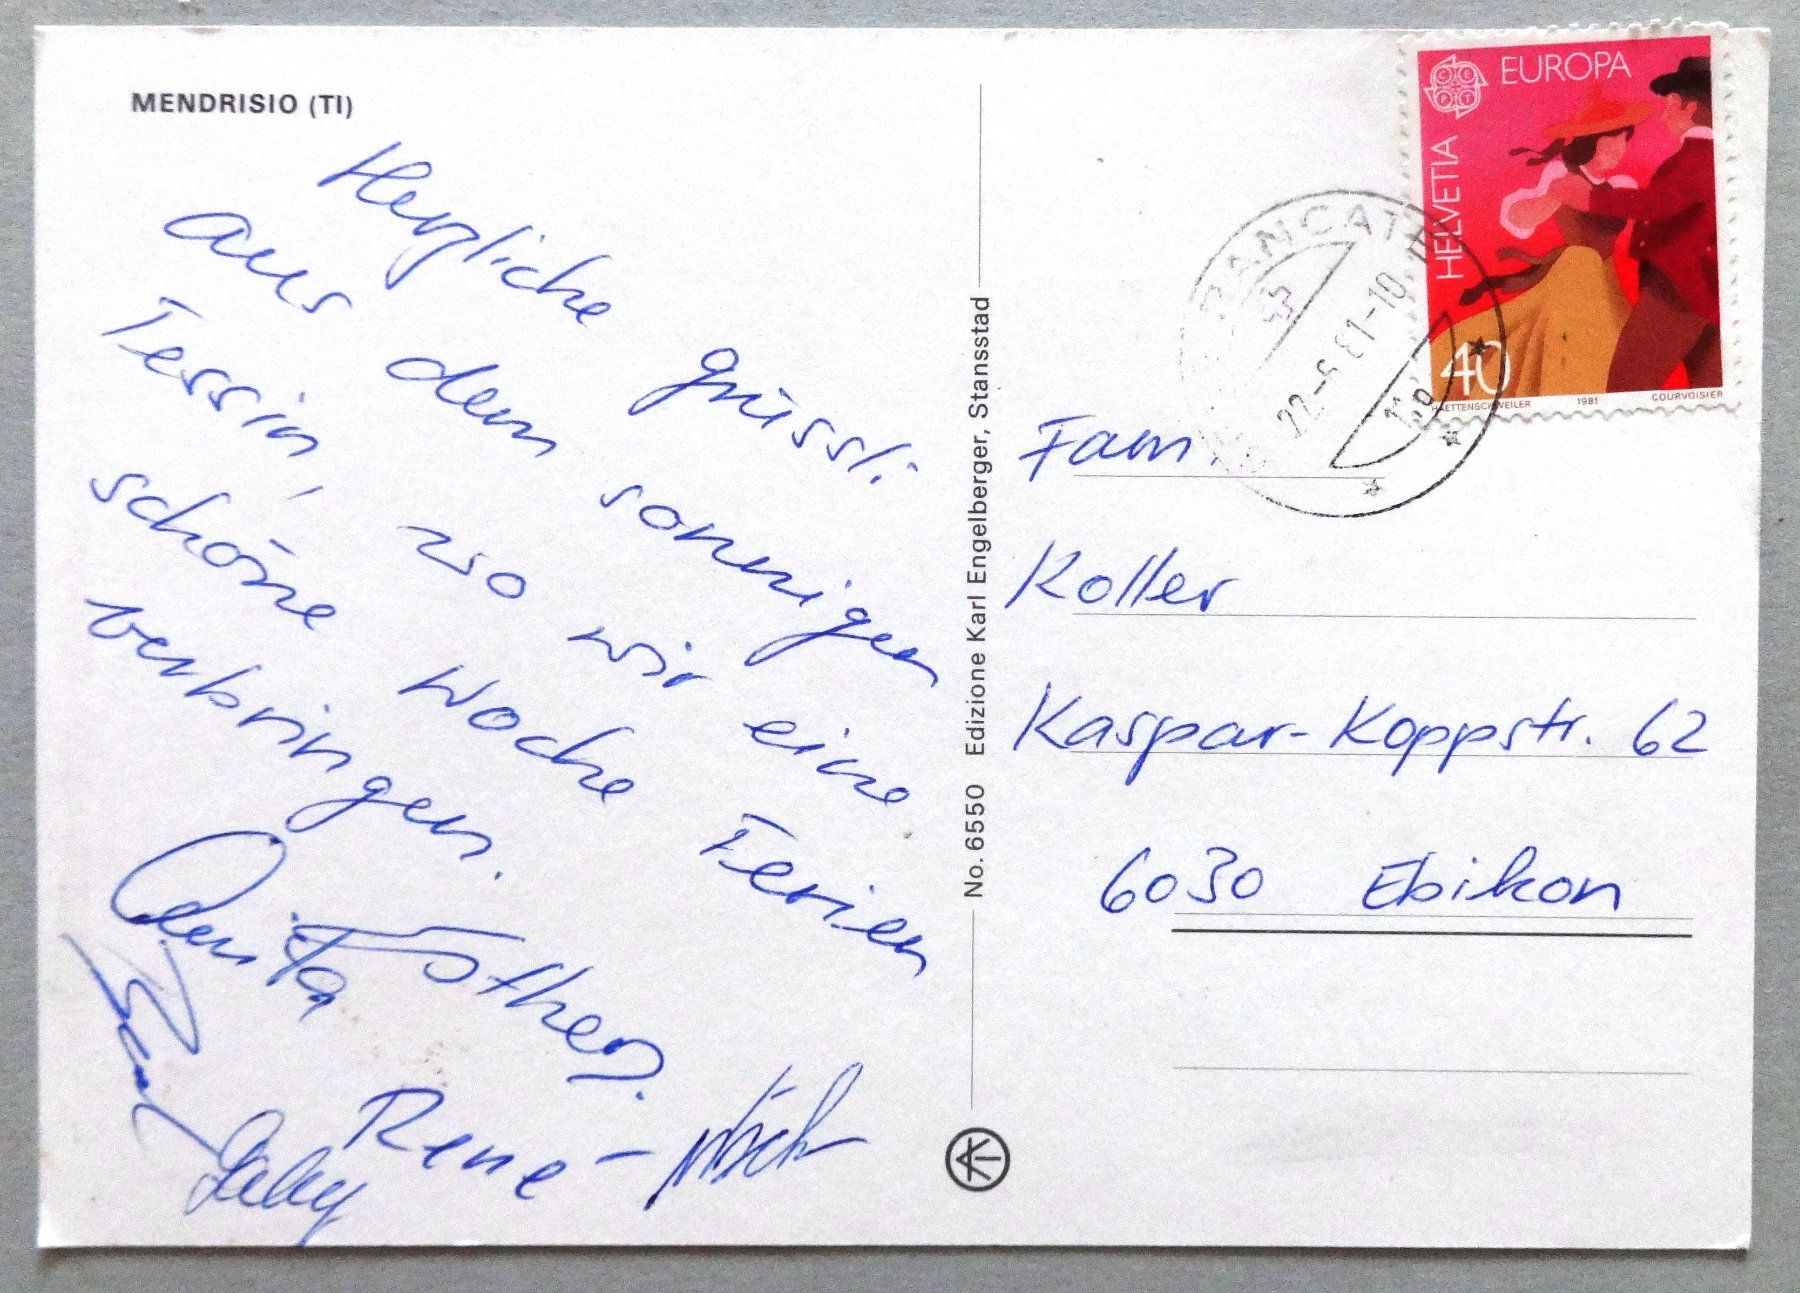 MENDRISIO (TI)
Herzliche grüssli
aus dem sonnigen
Tessin, wo wir eine
schöne Woche Ferien
verbringen.
Anita
Esther
René
Gaby
No. 6550 Edizione Karl Engelberger, Stansstad
EUROPA
HELVETIA
40
HAETTENSCHWEILER 1981 COURVOISIER
RANCATE
Fam.
Koller
Kaspar-Koppstr. 62
6030 Ebikon